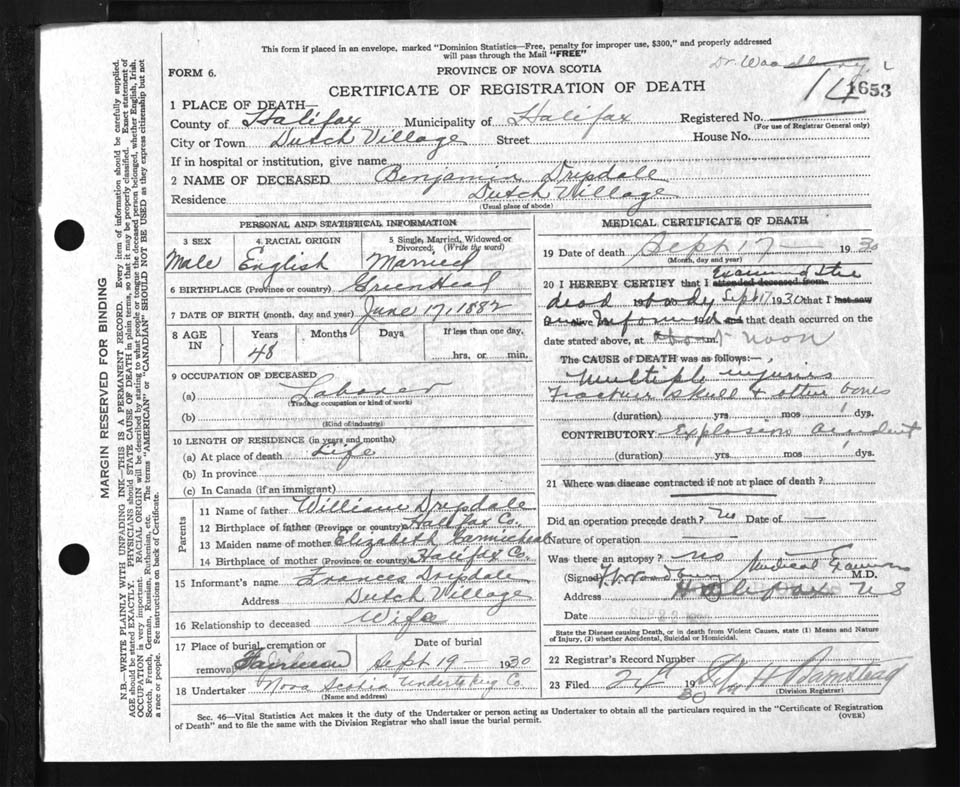 This form if placed in an envelope, marked "Dominion Statistics—Free, penalty for improper use, $300," and properly addressed
will pass through the Mail "FREE"
FORM 6.
PROVINCE OF NOVA SCOTIA
Dr. Woodbury
CERTIFICATE OF REGISTRATION OF DEATH
14 1653
1 PLACE OF DEATH—
County of Halifax Municipality of Halifax Registered No.
(For use of Registrar General only)
City or Town Dutch Village Street House No.
If in hospital or institution, give name
2 NAME OF DECEASED Benjamin Dripdale
Residence Dutch Village
(Usual place of abode)
PERSONAL AND STATISTICAL INFORMATION
3 SEX 4. RACIAL ORIGIN 5 Single, Married, Widowed or Divorced, (Write the word)
Male English Married
6 BIRTHPLACE (Province or country) Green Head
7 DATE OF BIRTH (month, day and year) June 17, 1882
8 AGE IN Years Months Days If less than one day,
48 hrs. or min.
9 OCCUPATION OF DECEASED
(a) Laborer
(Trade, occupation or kind of work)
(b)
(Kind of industry)
10 LENGTH OF RESIDENCE (in years and months)
(a) At place of death Life
(b) In province
(c) In Canada (if an immigrant)
Parents
11 Name of father William Dripdale
12 Birthplace of father (Province or country) Halifax Co.
13 Maiden name of mother Elizabeth Carmichael
14 Birthplace of mother (Province or country) Halifax Co.
15 Informant's name Frances Dripdale
Address Dutch Village
16 Relationship to deceased Wife
17 Place of burial, cremation or removal Fairview Date of burial Sept 19 — 1930
18 Undertaker Nova Scotia Undertaking Co.
(Name and address)
MEDICAL CERTIFICATE OF DEATH
19 Date of death Sept 17 — 1930
(Month, day and year)
20 I HEREBY CERTIFY that I attended deceased from Examined the
dead body Sept 17 1930 that I last saw
alive Informed 193 and that death occurred on the
date stated above, at about m. noon
The CAUSE OF DEATH was as follows:—
Multiple injuries
Fracture skull & other bones
(duration) yrs mos 1 dys.
CONTRIBUTORY Explosion accident
(duration) yrs mos 1 dys.
21 Where was disease contracted if not at place of death?
Did an operation precede death? no Date of —
Nature of operation —
Was there an autopsy? no
(Signed) Woodbury Medical Examiner M.D.
Address Halifax N S
Date
State the Disease causing Death, or in death from Violent Causes, state (1) Means and Nature
of Injury, (2) whether Accidental, Suicidal or Homicidal.
22 Registrar's Record Number
23 Filed 1930 H Barnstead
(Division Registrar)
Sec. 46—Vital Statistics Act makes it the duty of the Undertaker or person acting as Undertaker to obtain all the particulars required in the "Certificate of Registration
of Death" and to file the same with the Division Registrar who shall issue the burial permit.
(OVER)
MARGIN RESERVED FOR BINDING
N.B.—WRITE PLAINLY WITH UNFADING INK—THIS IS A PERMANENT RECORD. Every item of information should be carefully supplied.
AGE should be stated EXACTLY. PHYSICIANS should STATE CAUSE OF DEATH in plain terms, so that it may be properly classified. Exact statement of
OCCUPATION is very important. RACIAL ORIGIN will be described by stating to what people or tongue the deceased person belonged, whether English, Irish,
Scotch, French, German, Russian, Ruthenian, etc. The terms "AMERICAN" or "CANADIAN" SHOULD NOT BE USED as they express citizenship but not
a race or people. See instructions on back of Certificate.